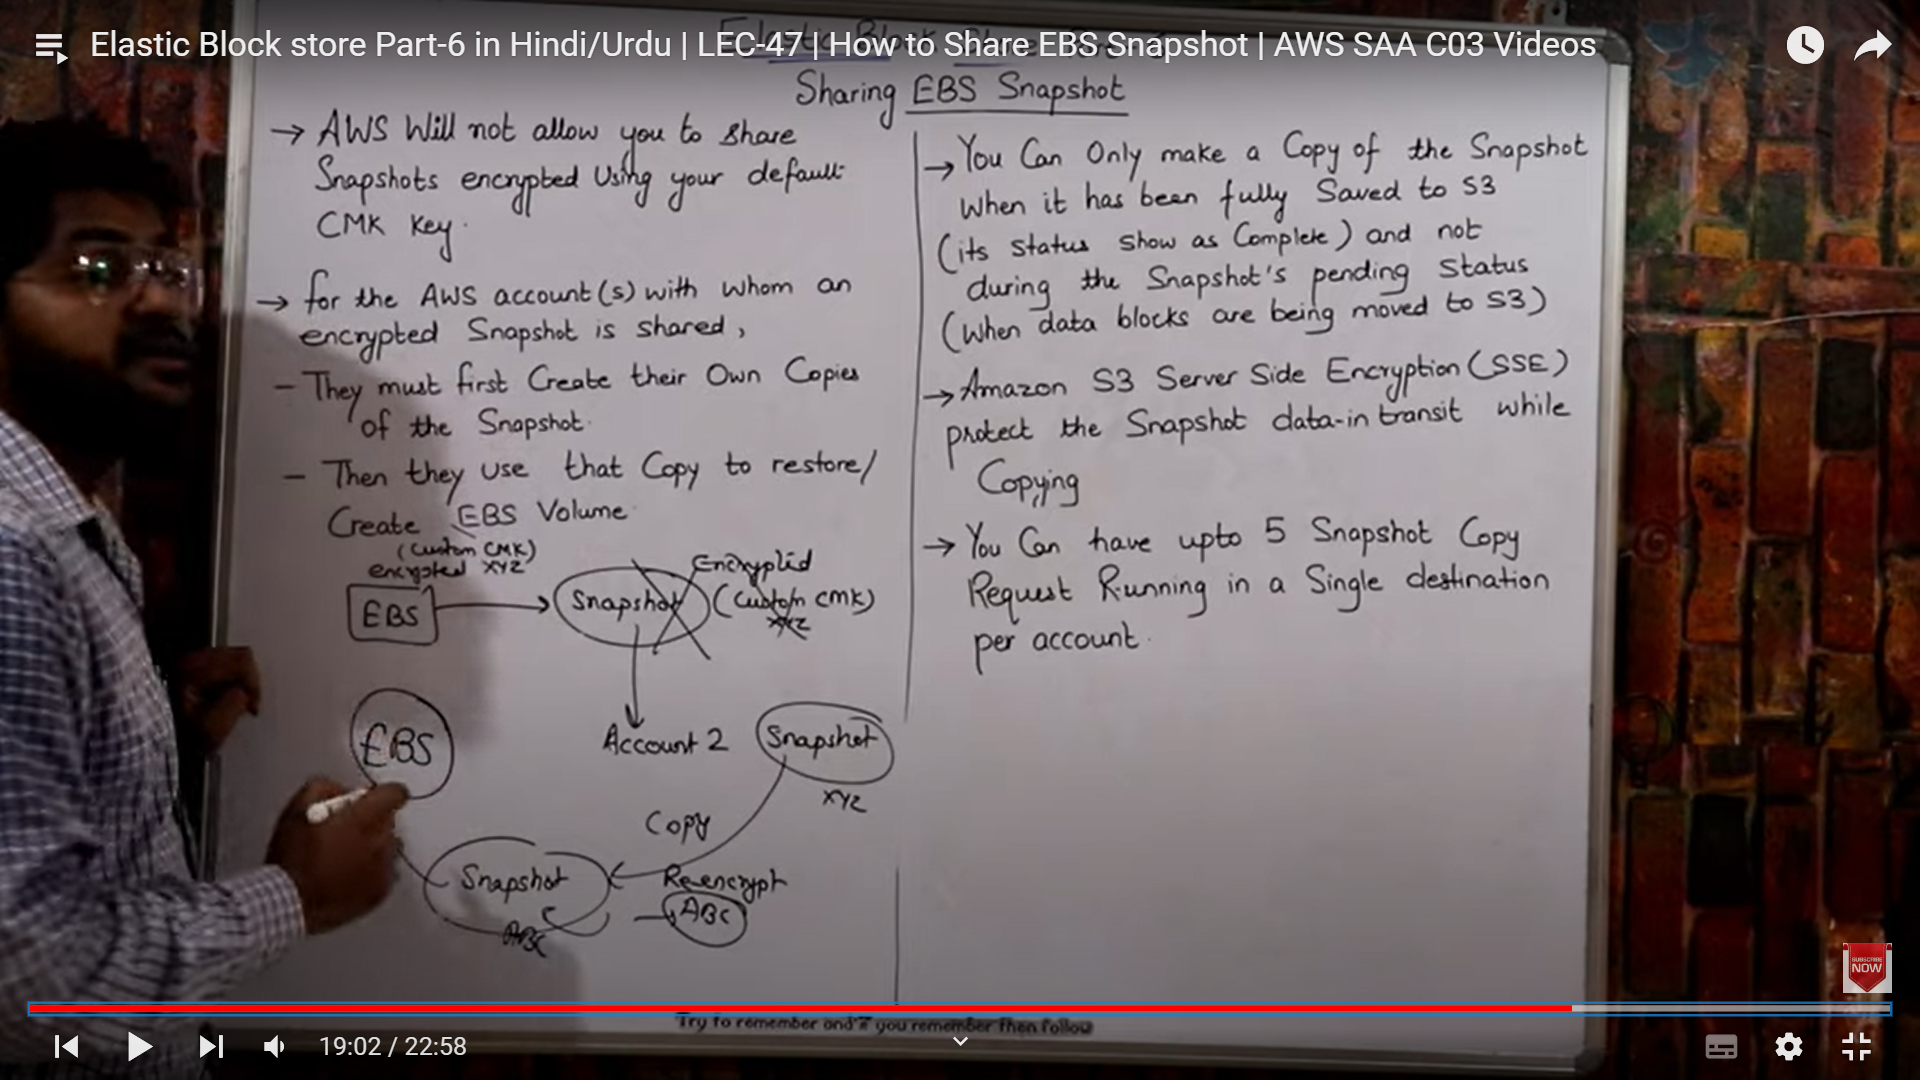 Elastic Block store Part-6 in Hindi/Urdu | LEC-47 | How to Share EBS Snapshot | AWS SAA C03 Videos
Sharing EBS Snapshot
→ AWS Will not allow you to share
Snapshots encrypted Using your default
CMK Key.
→ for the AWS account(s) with whom an
encrypted Snapshot is shared,
- They must first Create their Own Copies
of the Snapshot.
- Then they use that Copy to restore/
Create EBS Volume
(Custom CMK)
encrypted XYZ
EBS
Snapshot
Encrypted
(Custom CMK)
XYZ
EBS
Account 2
Snapshot
XYZ
Copy
Snapshot
Re-encrypt
ABC
ABC
→ You Can Only make a Copy of the Snapshot
When it has been fully Saved to S3
(its status show as Complete) and not
during the Snapshot's pending Status
(When data blocks are being moved to S3)
→ Amazon S3 Server Side Encryption (SSE)
protect the Snapshot data-in transit while
Copying
→ You Can have upto 5 Snapshot Copy
Request Running in a Single destination
per account.
SUBSCRIBE
NOW
Try to remember and if you remember then follow
19:02 / 22:58